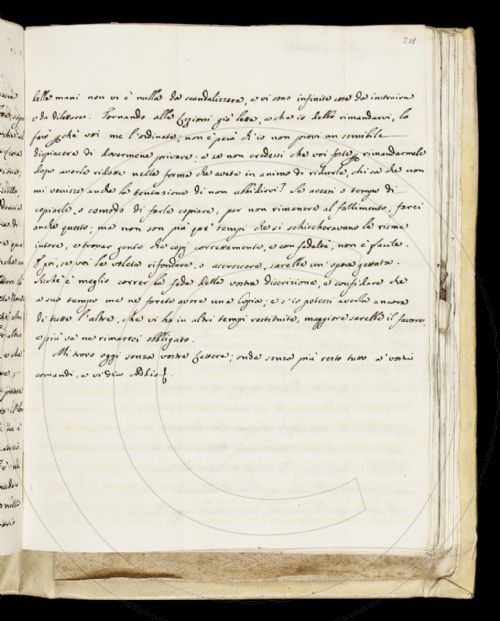 218
belle mani non vi è nulla da scandalizzare, e vi sono infinite cose da instruire
e da dilettare. Tornando alle Lezioni già lette, e che io debbo rimandarvi, lo
farò perchè voi me l'ordinate; non è però ch'io non provi un sensibile
dispiacere di dovermene privare. e se non credessi che voi foste per rimandarmele
dopo averle ridotte nella forma che avete in animo di ridurle, chi sa che non
mi venisse anche la tentazione di non ubbidirvi? Se avessi o tempo di
copiarle, o comodo di farle copiare, per non rimanere al fallimento, farei
anche questo; ma non son più que' tempi che si schiccheravano le risme
intere, e trovar gente che copj correttamente, e con fedeltà, non è facile.
E poi, se voi le volete rifondere, o accrescere, sarebbe un'opera gettata.
Sicchè è meglio correr la fede della vostra discrizione, e confidare che
a suo tempo me ne farete avere una Copia; e s'io potessi averla ancora
di tutte l'altre, che vi ho in altri tempi restituite, maggiore sarebbe il favore,
e più ve ne rimarrei obbligato.
Mi trovo oggi senza vostre Lettere; onde senza più resto tutto a' vostri
comandi, e vi dico Addio